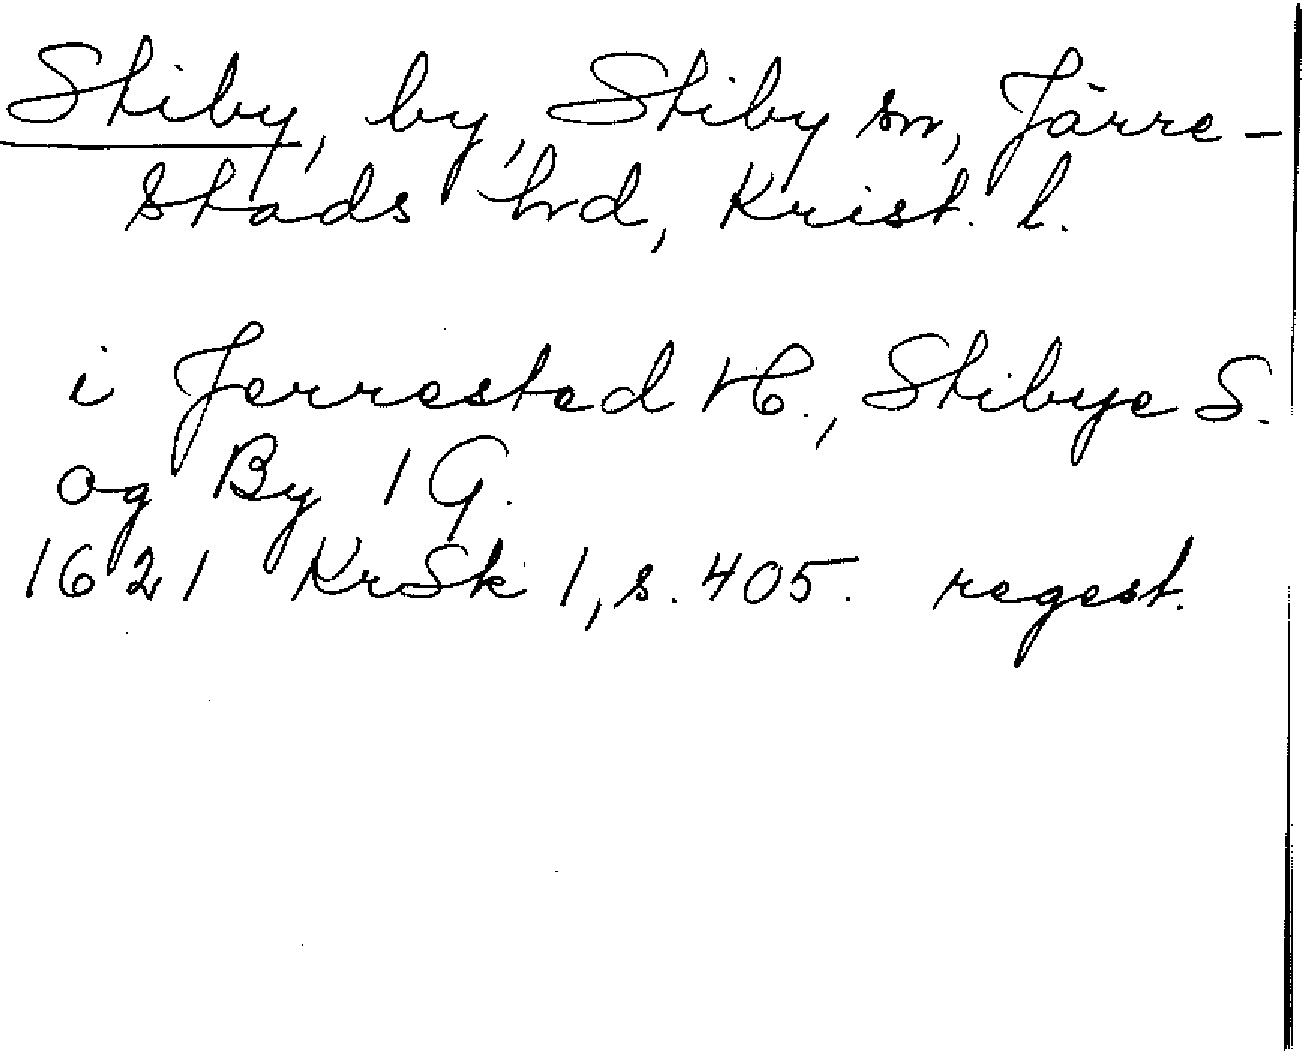 Stiby, by, Stiby sn, Järre-
stads hrd, Krist. l.
i Jerrested H., Stibye S.
og By 1 G.
1621 KrSk 1, s. 405. regest.